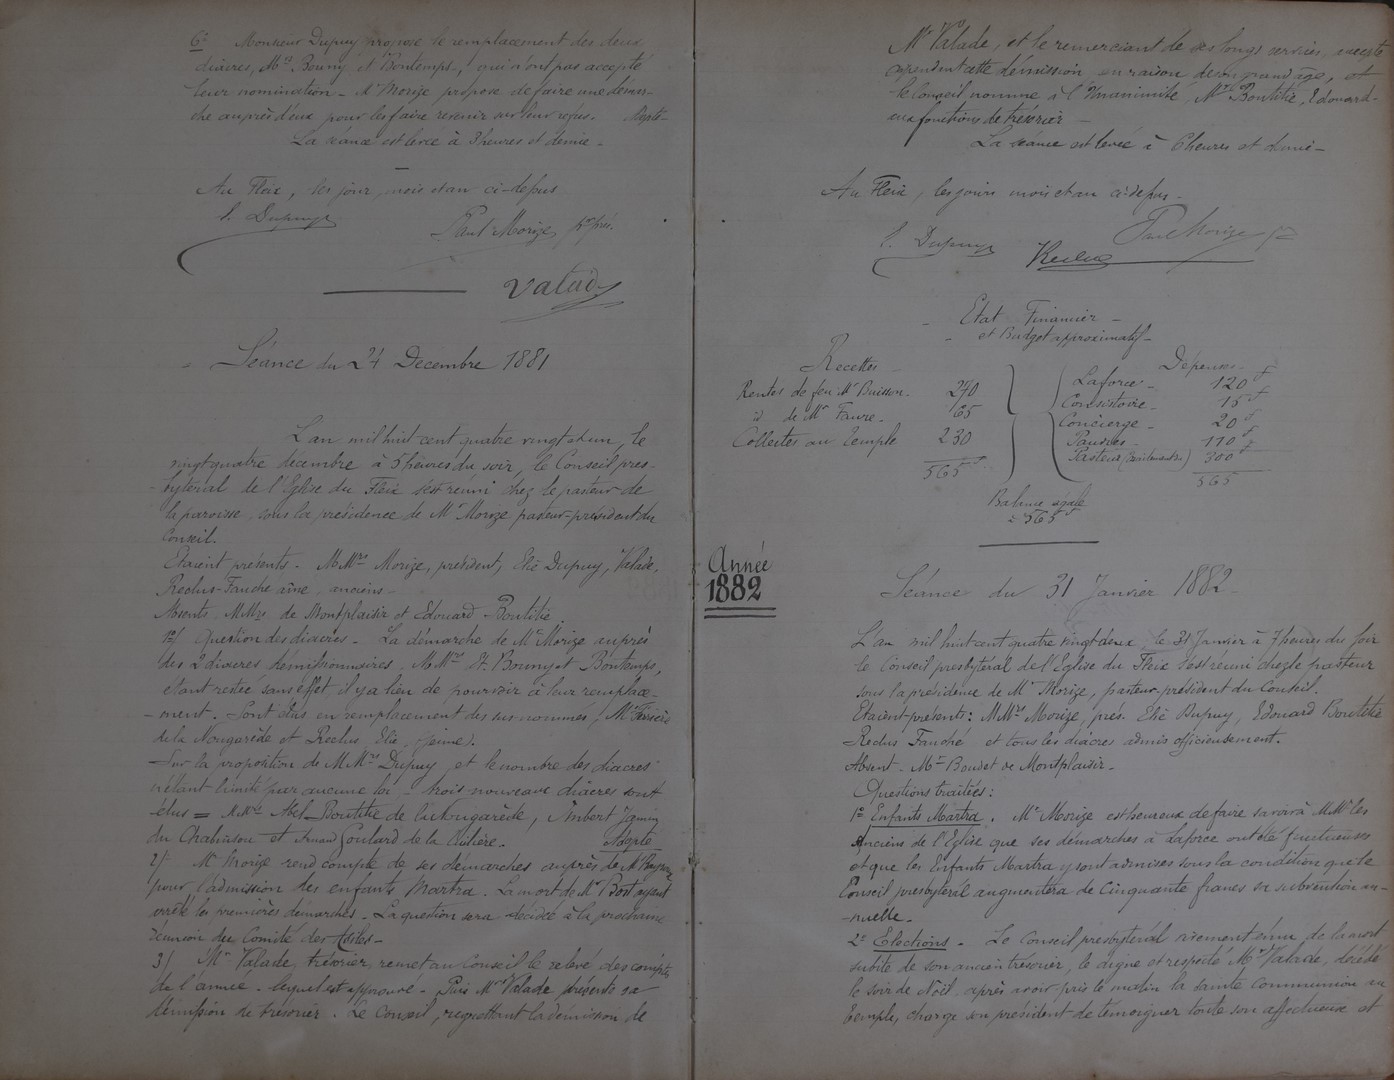 6° Monsieur Dupuy propose le remplacement des deux
diacres, Mrs Bouny et Bontemps, qui n'ont pas accepté
leur nomination - Mr Morize propose de faire une démar-
che auprès d'eux pour les faire revenir sur leur refus. Adopté-
La séance est levée à 9 heures et demie -
Au Fleix, les jour, mois et an ci-dessus
E. Dupuy
Paul Morize pr prés.
Valade
Séance du 24 Decembre 1881
L'an mil huit cent quatre vingt et un, le
vingt quatre décembre à 5 heures du soir, le Conseil pres-
-bytéral de l'Eglise du Fleix s'est réuni chez le pasteur de
la paroisse, sous la présidence de Mr Morize pasteur-président du
Conseil.
Etaient présents - MMrs Morize, président, Elie Dupuy, Valade,
Reclus-Fauché aîné, anciens -
Absents MMrs de Montplaisir et Edouard-Boutitie
1°/ Question des diacres - La démarche de Mr Morize auprès
des 2 diacres démissionnaires, MMrs H. Bouny et Bontemps,
étant restée sans effet, il y a lieu de pourvoir à leur remplace-
-ment. Sont élus en remplacement des sus nommés: Mr
de la Nougarède et Reclus, Elie, (jeune).
Sur la proposition de MMrs Dupuy, et le nombre des diacres
n'étant limité par aucune loi - trois nouveaux diacres sont
élus = MMrs Abel-Boutitie de la Nougarède, Imbert Jamin
du et Amand Goulard de la Adopté
2/ Mr Morize rend compte de ses démarches auprès de Mr
pour l'admission des enfants Martra. La mort de Mr Bost ayant
arrêté les premières démarches - La question sera décidée à la prochaine
réunion du Comité des Asiles -
3/ Mr Valade, trésorier, remet au Conseil le relevé des comptes
de l'année - lequel est approuvé - Puis Mr Valade présente sa
démission de trésorier. Le Conseil, regrettant la démission de
Mr Valade, et le remerciant de ses longs services, accepte
cependant cette démission en raison de son grand âge, et
le Conseil nomme à l'unanimité Mr Boutitie, Edouard-
aux fonctions de trésorier -
La séance est levée à 6 heures et demie -
Au Fleix, les jour mois et an ci-dessus -
E. Dupuy
Reclus
Paul Morize
- Etat Financier -
- et Budget approximatif -
Recettes
Rentes de feu Mr Buisson - 270
id de Mr Faure - 65
Collectes au Temple 230
565 f
Dépenses -
Laforce - 120 f
Consistoire - 15 f
Concierge - 20 f
Pauvres - 110 f
Pasteur 300 f
565
Balance égale
= 565 f
Année
1882
Séance du 31 Janvier 1882 -
L'an mil huit cent quatre vingt deux, le 31 Janvier à 7 heures du soir
le Conseil presbytéral de l'Eglise du Fleix s'est réuni chez le pasteur
sous la présidence de Mr Morize, pasteur-président du Conseil.
Etaient présents: MMrs Morize, prés. Elie Dupuy, Edouard Boutitie
Reclus Fauché et tous les diacres admis officieusement.
Absent - Mr Boudet de Montplaisir -
Questions traitées:
1° Enfants Martra. Mr Morize est heureux de faire savoir à MMrs les
Anciens de l'Eglise que ses démarches à Laforce ont été fructueuses
et que les Enfants Martra y sont admises sous la condition que le
Conseil presbytéral augmentera de Cinquante francs sa subvention an-
-nuelle -
2° Elections - Le Conseil presbytéral vivement ému de la mort
subite de son ancien trésorier, le digne et respecté Mr Valade, décédé
le soir de Noël, après avoir pris le matin la sainte Communion au
Temple, charge son président de témoigner toute son affectueuse et